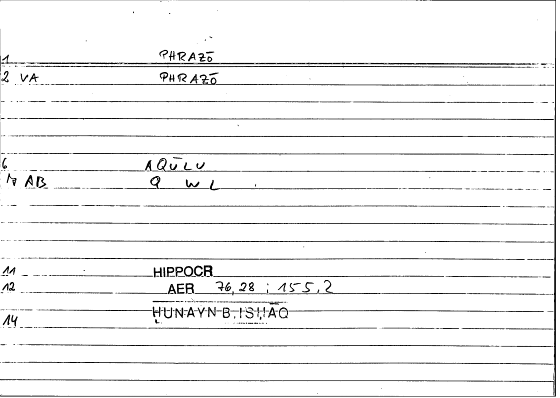 1 PHRAZŌ
2 VA PHRAZŌ
6 AQŪLU
7 AB Q W L
11 HIPPOCR
12 AER 76,28 ; 155,2
14 ḤUNAYN B. ISḤĀQ